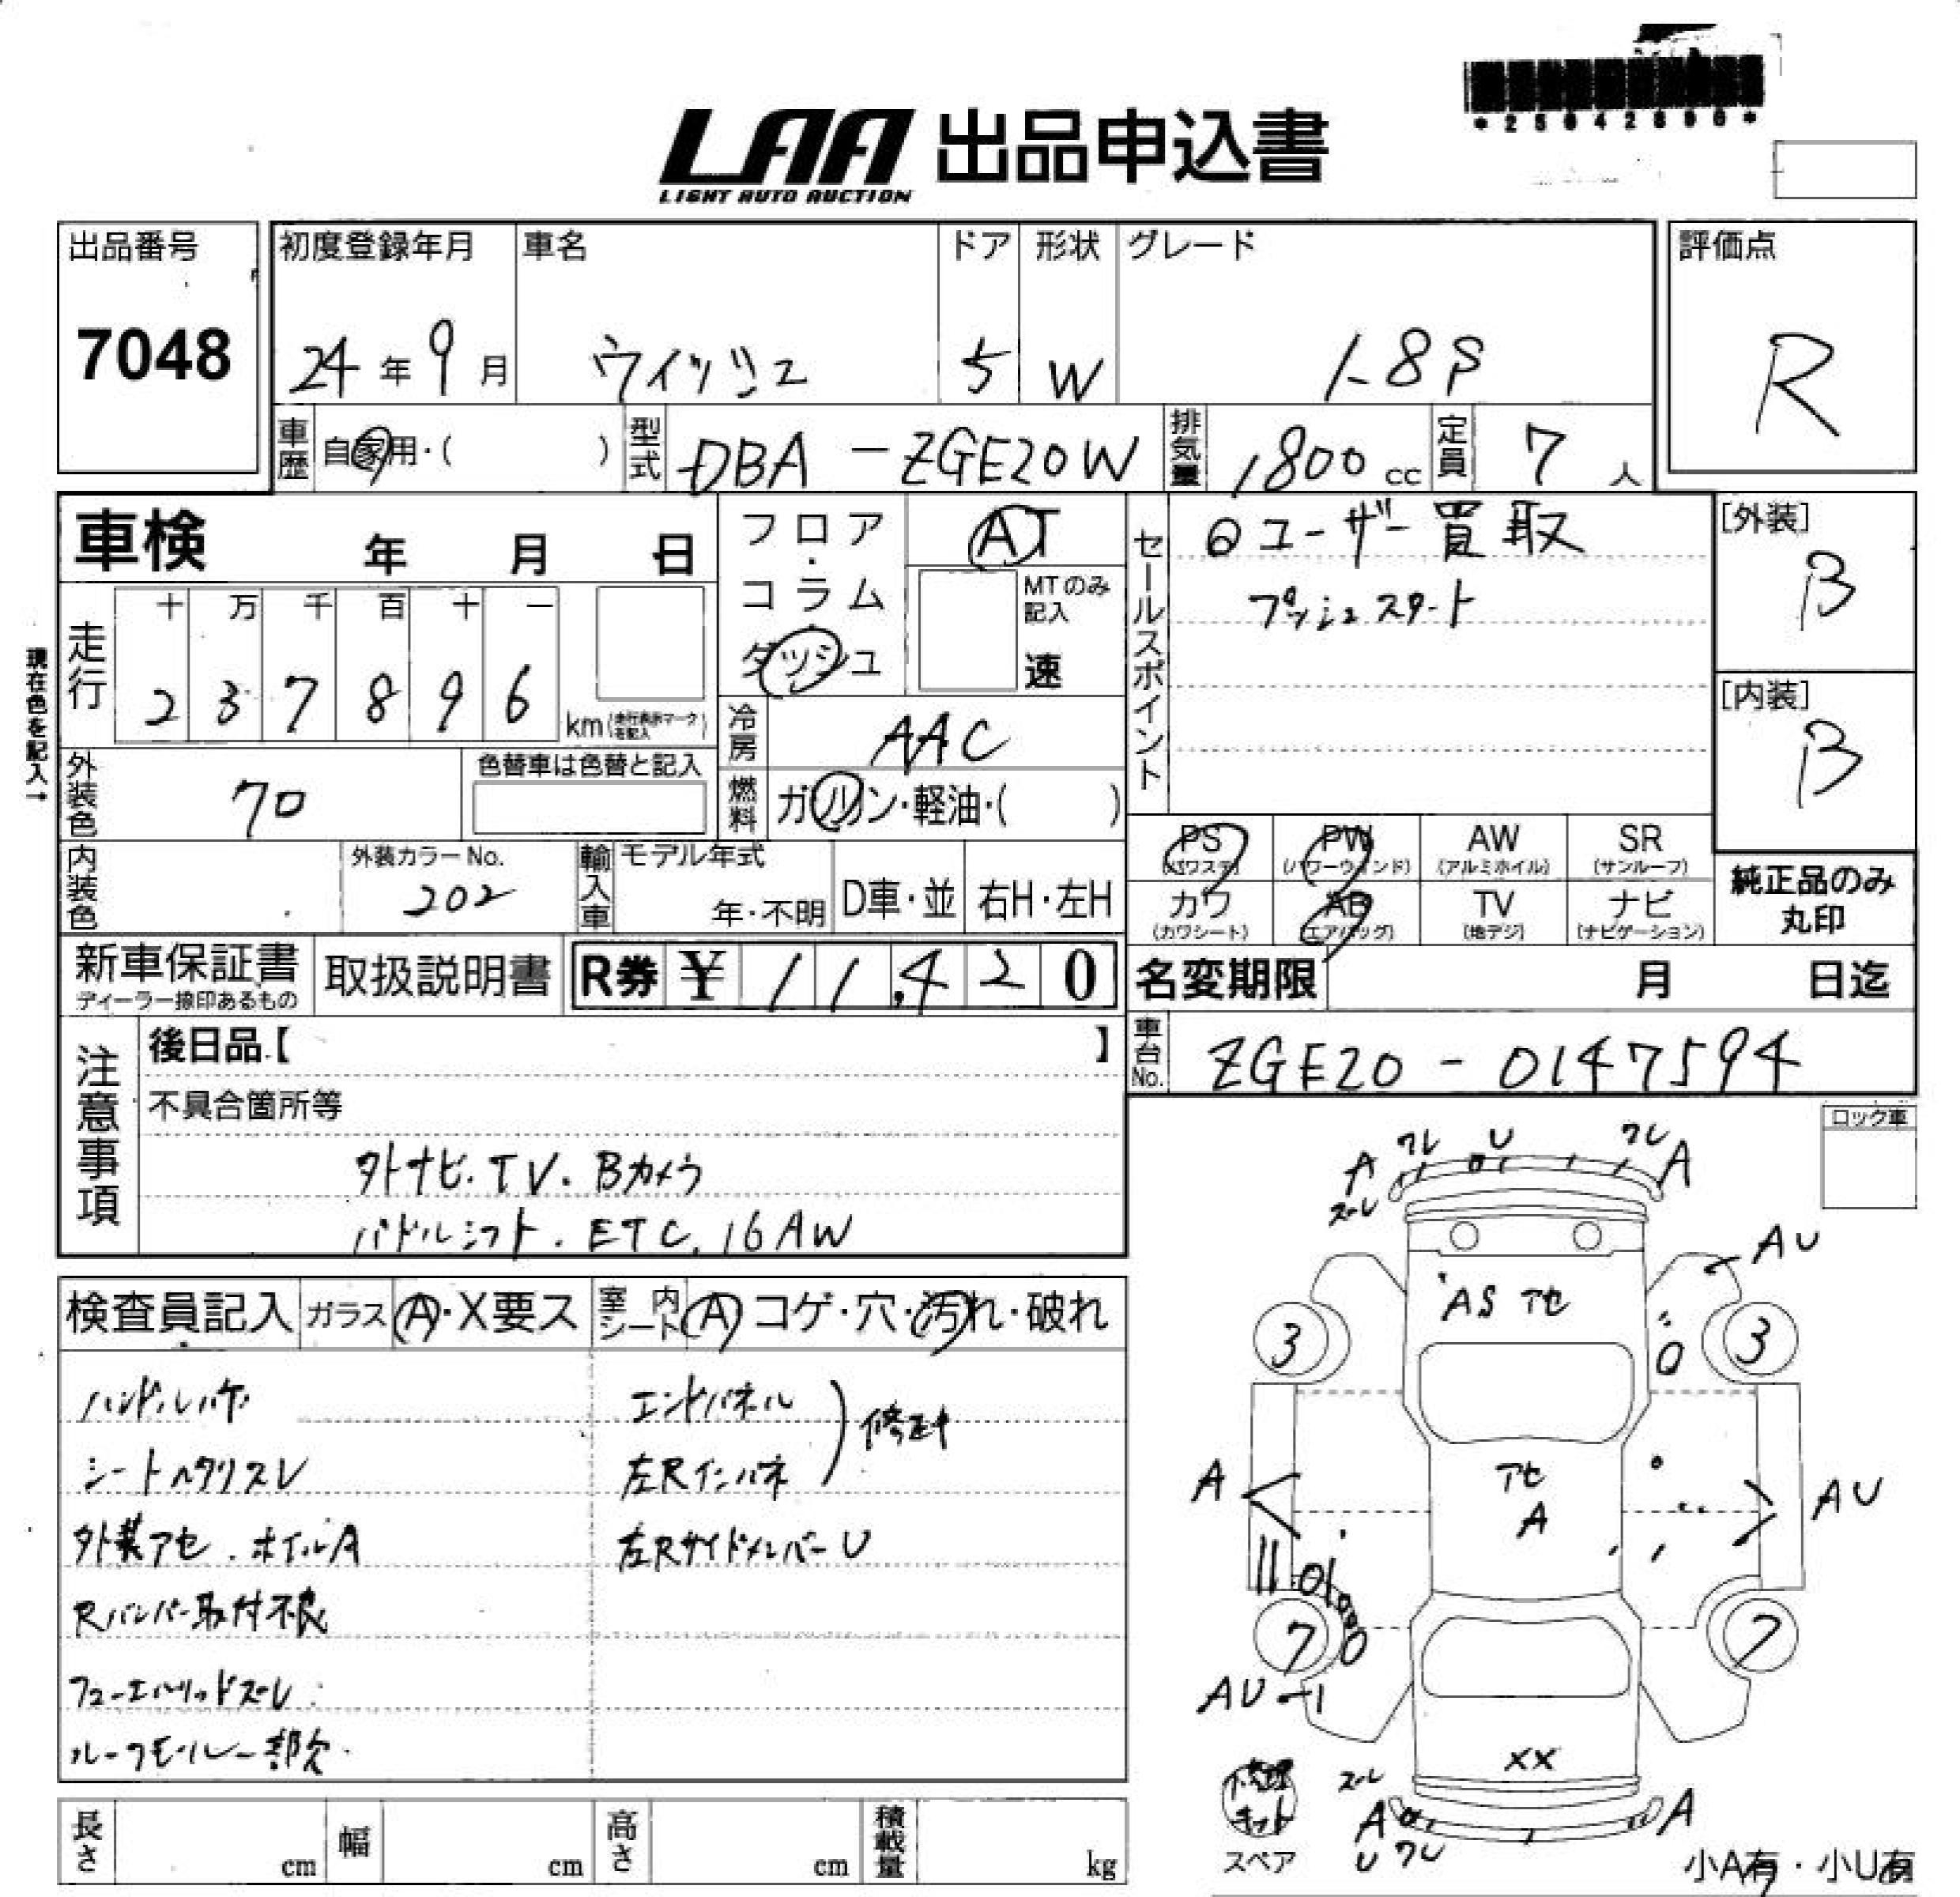 *25042890*
LAA 出品申込書
LIGHT AUTO AUCTION
出品番号
7048
初度登録年月
24年9月
車名
ウィッシュ
ドア
5
形状
W
グレード
1.8S
評価点
R
車歴
自家用・( )
型式
DBA-ZGE20W
排気量
1800cc
定員
7人
車検 年 月 日
フロア・コラム・ダッシュ
AT
MTのみ記入
速
セールスポイント
◎ユーザー買取
プッシュスタート
[外装]
B
[内装]
B
現在色を記入→
走行
十 万 千 百 十 一
2 3 7 8 9 6
km(走行表示マークを記入)
冷房
AAC
外装色
70
色替車は色替と記入
燃料
ガソリン・軽油・( )
PS (パワステ)
PW (パワーウィンド)
AW (アルミホイル)
SR (サンルーフ)
カワ (カワシート)
AB (エアバッグ)
TV (地デジ)
ナビ (ナビゲーション)
純正品のみ丸印
内装色
外装カラーNo.
202
輸入車
モデル年式
年・不明
D車・並
右H・左H
新車保証書
ディーラー捺印あるもの
取扱説明書
R券 ¥ 11,420
名変期限 月 日迄
車台No.
ZGE20-0147594
注意事項
後日品【 】
不具合箇所等
外ナビ.TV.Bカメラ
パドルシフト.ETC.16AW
ロック車
検査員記入
ガラス A・X要ス
室内シート A コゲ・穴・汚れ・破れ
ハンドルハゲ
シートヘタリスレ
外装アセ.ホイルA
Rバンパー取付不良
フューエルリッドズレ
ルーフモール一部欠
エンドパネル
左Rインパネ
修正中
左RサイドメンバーU
A
ワレ
U
ワレ
A
ズレ
AU
AS アセ
3
3
アセ
A
A
AU
7
7
AU-1
XX
ズレ
A
U
ワレ
A
修理キット
スペア
小A有・小U有
長さ cm
幅 cm
高さ cm
積載量 kg